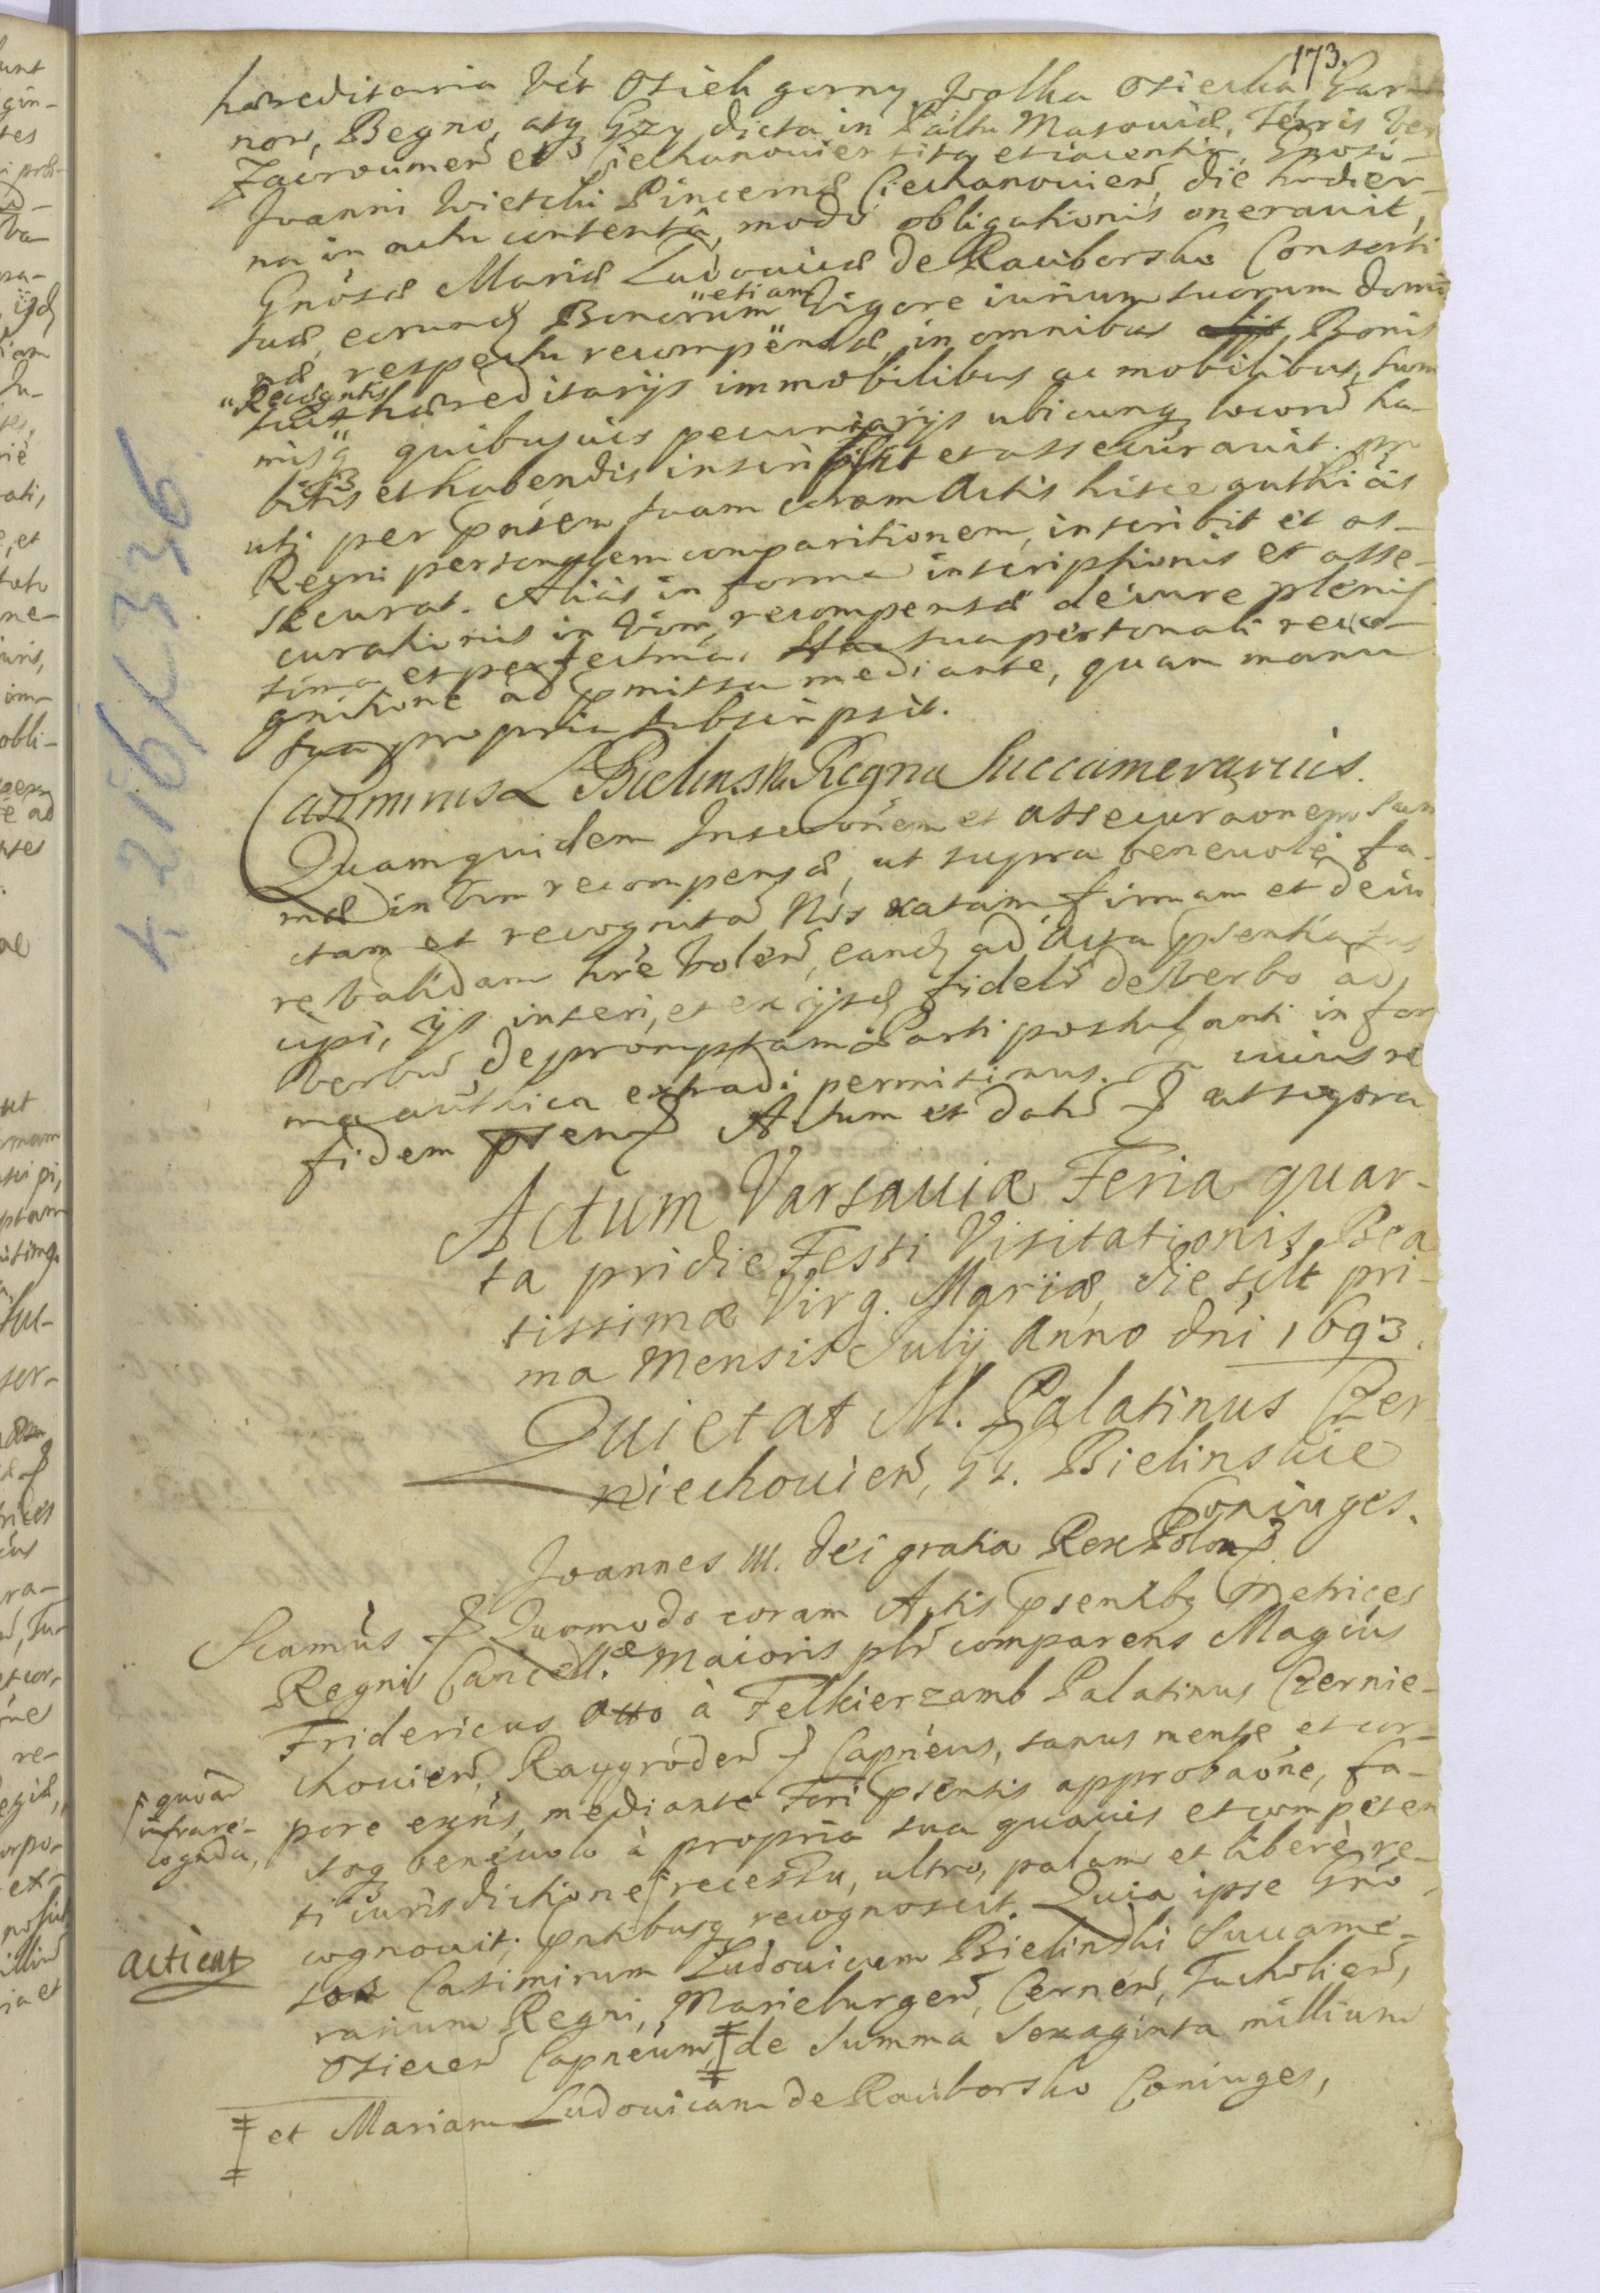 173.
hæreditaria Vlt Osiek gorny Wolka Osiecka Gar-
now, Begno, atq Gzy dicta in Pałtu Masoviæ, Terris
Zacrocimeñ et Ciechanovieñ sita et iacentia, Gnoso
Joanni Ciechanovieñ, die hodier-
na in actu contenta, modo obligationis oneravit,
Gnosæ Mariæ Ludovicæ de Raciborsko Consorti
suæ, eorund Bonorum "etiam Vigore iurium suorum
respectu recompensæ, in omnibus Bonis
"Recogntis
suis hæreditarijs immobilibus ac mobilibus, sum
misq quibusvis pecuniarijs ubicunq locorũ ha-
bitis et habendis inscripsit et assecuravit. pro
uti per pntem suam coram Actis hisce authicis
Regni personalem comparitionem, inscribit et as-
securat. Alias in forma inscriptionis et asse-
curationis in Vim recompensæ de iure plenis-
sima et perfectma. sua personali reco-
gnitione ad pmissa mediante, quam manu
sua propria subscripsit.
Casimirus L Bielinski Regni Succamerarius.
Quamquidem Inscrōnem et assecuraōnem Sum
mæ in Vim recompensæ, ut supra benevole fa-
ctam et recognitã Nos ratam, firmam et de iu
re Validam hre Volen, eand ad Acta psentia sus
cipi, ijs inseri, et ex ijsd fidelr de Verbo ad
Verbũ depromptam Parti postulanti in for
ma authica extradi permisimus. In cuius re
fidem psen Actum et datũ ut supra
Actum Varsaviæ Feria quar-
ta pridie Festi Visitationis Bea
tissimæ Virg. Mariæ, die scilt pri-
ma Mensis Julij Anno dni 1693.
Quietat M. Palatinus Czer
niechovieñ, GG. Bielinscie
Coniuges.
Joannes III. Dei gratia Rex Polon
Scamus Quomodo coram Actis psentibq Metrices
Regni Cancell.æ Maioris plr comparens Magcus
Fridericus Otto à Felkierzamb Palatinus Czernie-
chovieñ, Raygrodeñ Capneus, sanus mente et cor-
pore exñs, mediante Fori psentis approbaōne, fa-
ctaq benevolo à propria sua quavis et competen
ti iurisdictione recessu, ultro, palam et libere re-
cognovit, pntibusq recognoscit. Quia ipse Gno
sos Casimirum Ludovicum Bielinski Succame-
rarium Regni, Marieburgeñ, Cerneñ, Tucholieñ,
Osieceñ Capneum, de Summa Sexaginta millium
et Mariam Ludovicam de Raciborsko Coniuges,
quoad
infrare-
cognda,
acticat